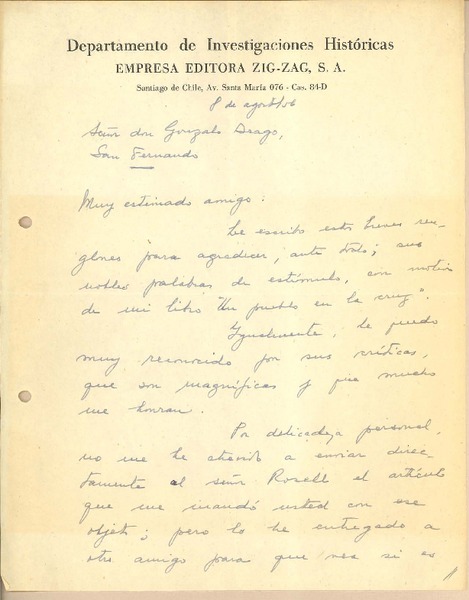 Departamento de Investigaciones Históricas
EMPRESA EDITORA ZIG-ZAG, S. A.
Santiago de Chile, Av. Santa María 076 - Cas. 84-D
8 de agosto/56
Señor don Gonzalo Drago,
San Fernando
Muy estimado amigo:
Le escribo estos breves ren-
glones para agradecer, ante todo; sus
nobles palabras de estímulo, con motivo
de mi libro "Un pueblo en la cruz".
Igualmente, le quedo
muy reconocido por sus críticas,
que son magníficas y que mucho
me honran.
Por delicadeza personal,
no me he atrevido a enviar direc-
tamente al señor Rosell el artículo
que me mandó usted con ese
objeto; pero lo he entregado a
otro amigo para que vea si es